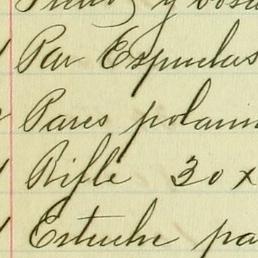 y
Par Espuelas
Pares polain
Rifle 30 x
Estuche pa